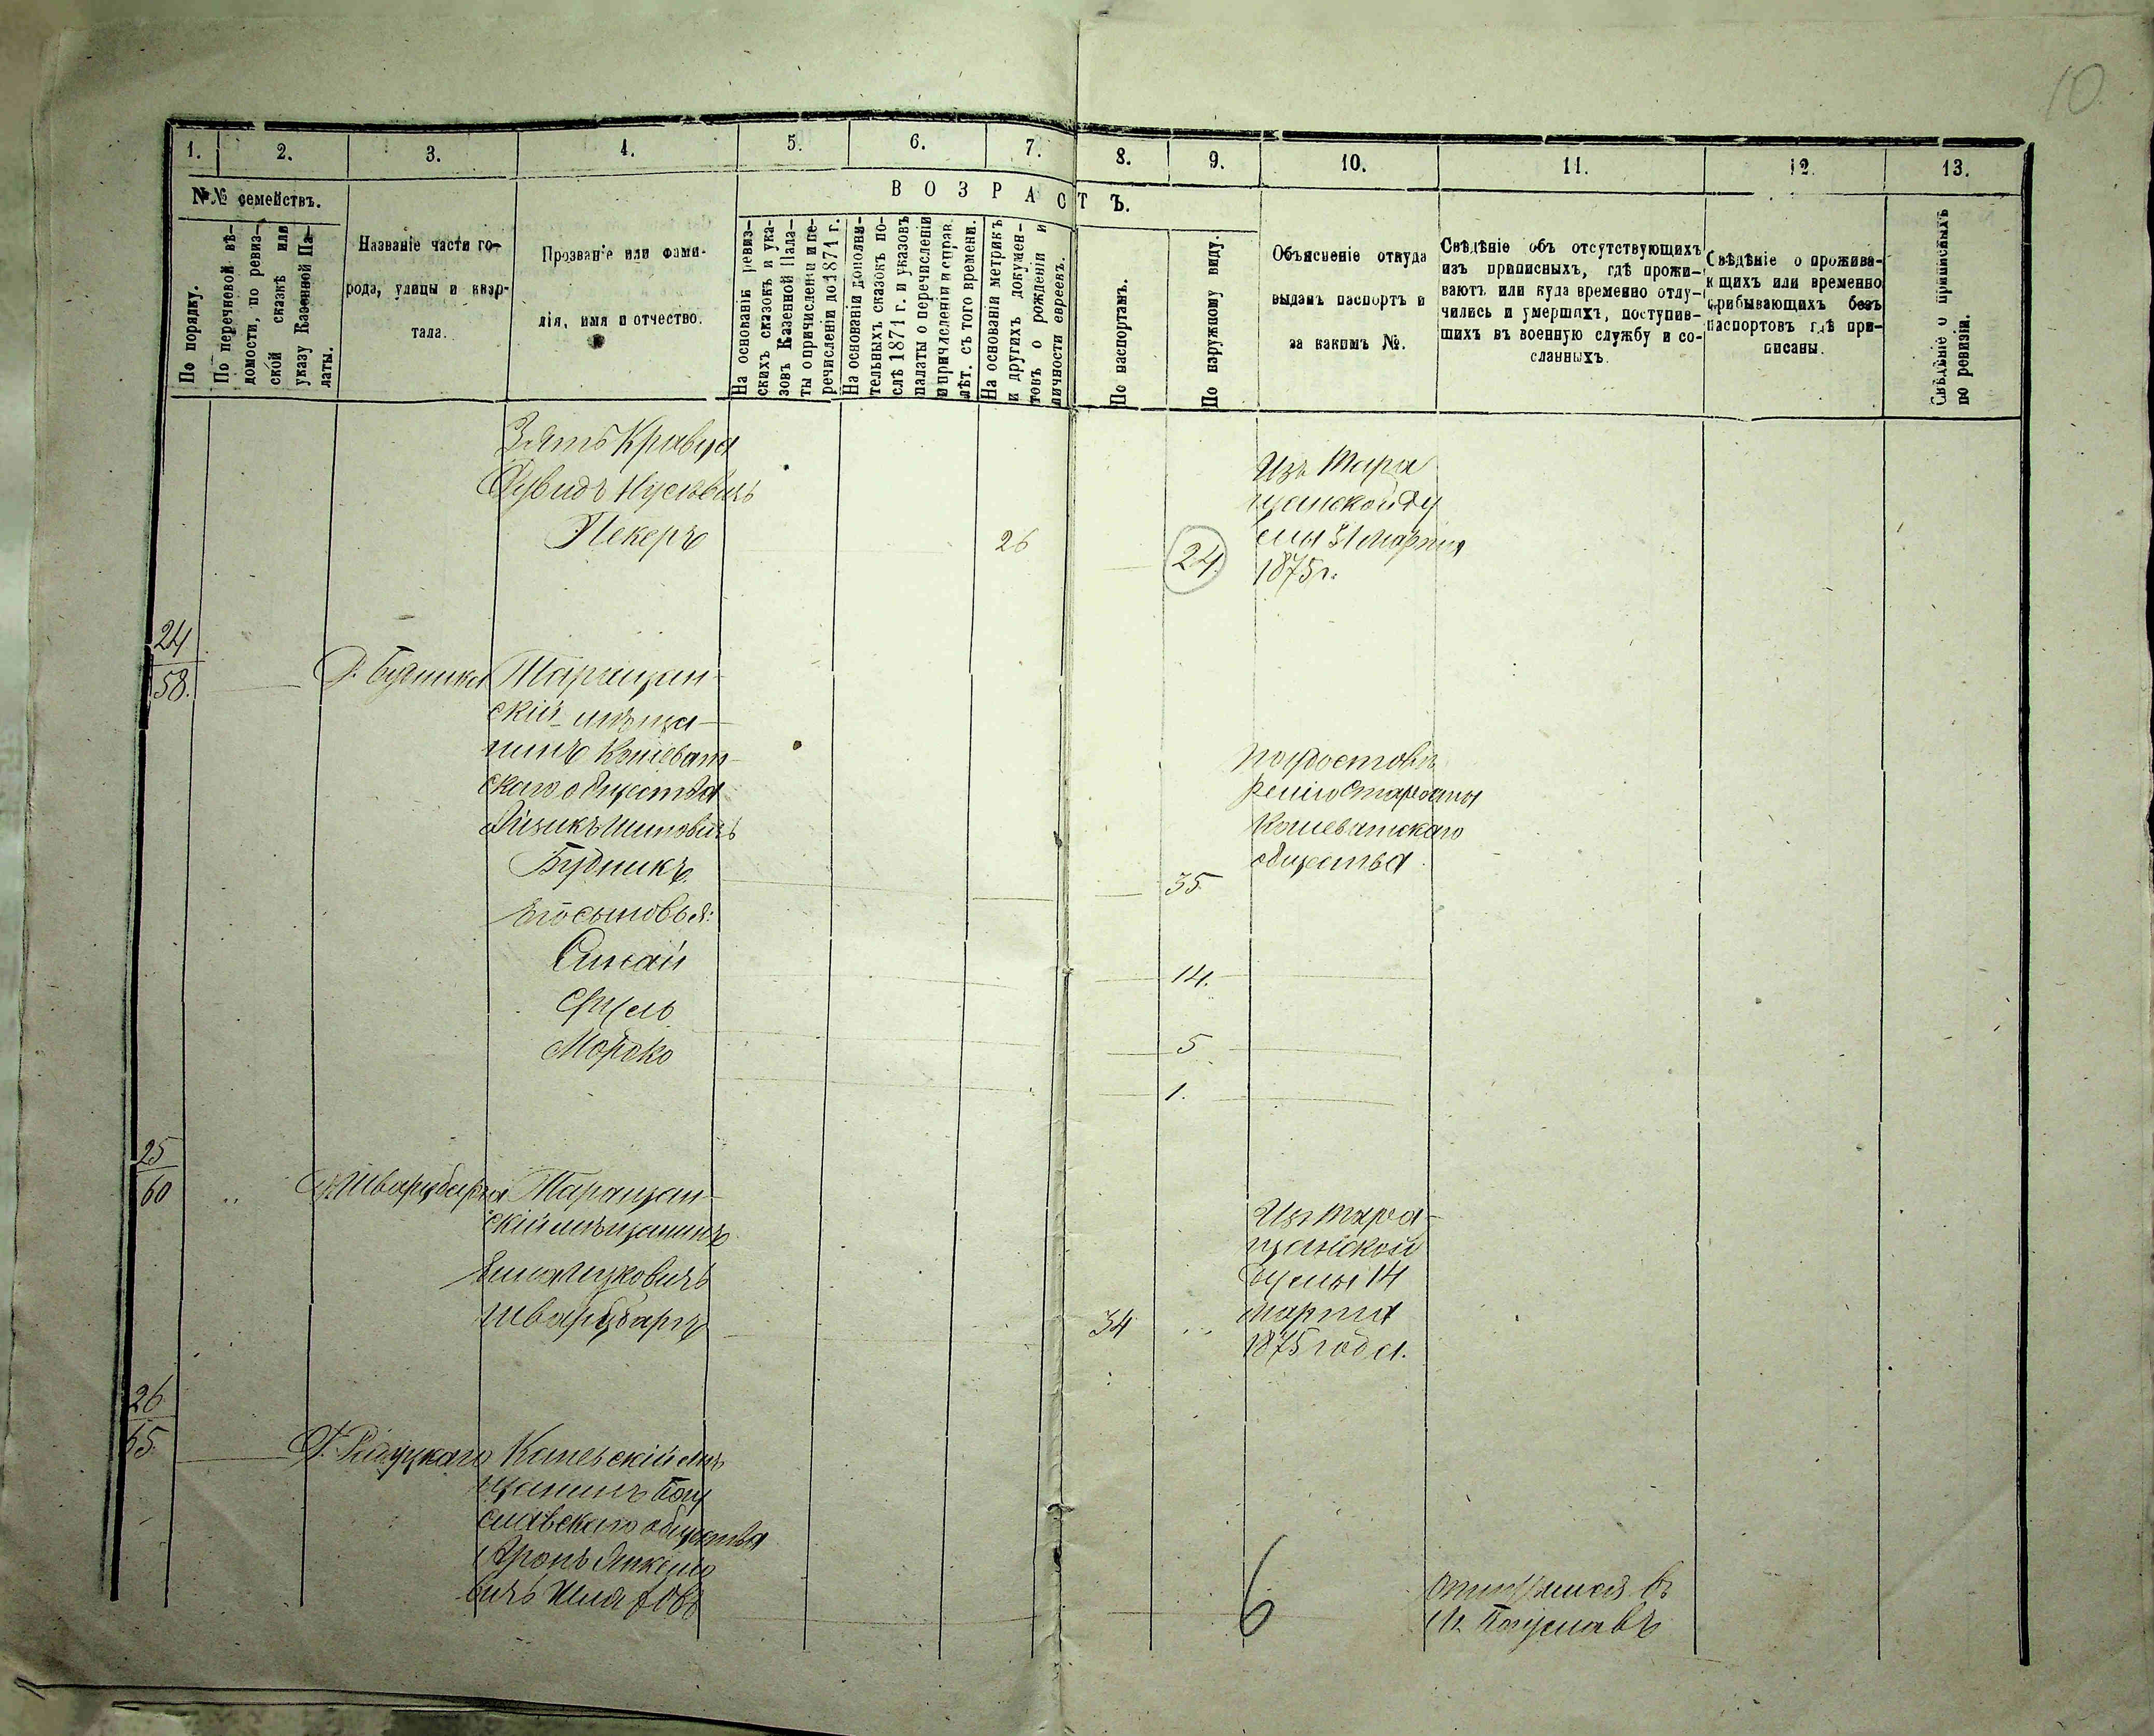 10
1. 2. 3. 4. 5. 6. 7. 8. 9. 10. 11. 12. 13.
№№ семействъ.
ВОЗРАСТЪ.
По порядку.
По перечневой вѣ-
домости, по ревиз-
ской сказкѣ или
указу Казенной Па-
латы.
Названіе части го-
рода, улицы и квар-
тала.
Прозваніе или фами-
лія, имя и отчество.
На основаніи ревиз-
скихъ сказокъ и ука-
зовъ Казенной Пала-
ты о причисленіи и пе-
речисленіи до 1871 г.
На основаніи дополни-
тельныхъ сказокъ по-
слѣ 1871 г. и указовъ
палаты о перечисленіи
и причисленіи и справ.
лѣт. съ того времени.
На основаніи метрикъ
и другихъ докумен-
товъ о рожденіи и
личности евреевъ.
По паспортамъ.
По наружному виду.
Объясненіе откуда
выданъ паспортъ и
за какимъ №.
Свѣдѣніе объ отсутствующихъ
изъ приписныхъ, гдѣ прожи-
ваютъ или куда временно отлу-
чились и умершихъ, поступив-
шихъ въ военную службу и со-
сланныхъ.
Свѣдѣніе о прожива-
ющихъ или временно
прибывающихъ безъ
паспортовъ гдѣ при-
писаны.
Свѣдѣніе о приписныхъ
по ревизіи.
Зять Кравца
Дувидъ Нусевичъ
Пекеръ
26
24
Изъ Тара
щанской Ду
мы 31 марта
1875 г.
24
58.
Д. Будника
Таращан-
скій мѣща-
нинъ Кошеват-
скаго общества
Айзикъ Шимовичъ
Будникъ
35.
по удостовѣ
ренію Старосты
Кошеватскаго
общества
Его сыновья:
Синай
14.
Срель
5
Мордко
1.
25
60
Д. Шварцбарга
Таращан-
скій мѣщанинъ
Ицковичъ
Шварцбаргъ
34
Изъ Тара-
щанской
думы 14
марта
1875 года.
26
65.
Д.
Каневскій мѣ
щанинъ Богу
славскаго общества
Аронъ Янкело
вичъ
6
отлучился въ
м. Богуславъ